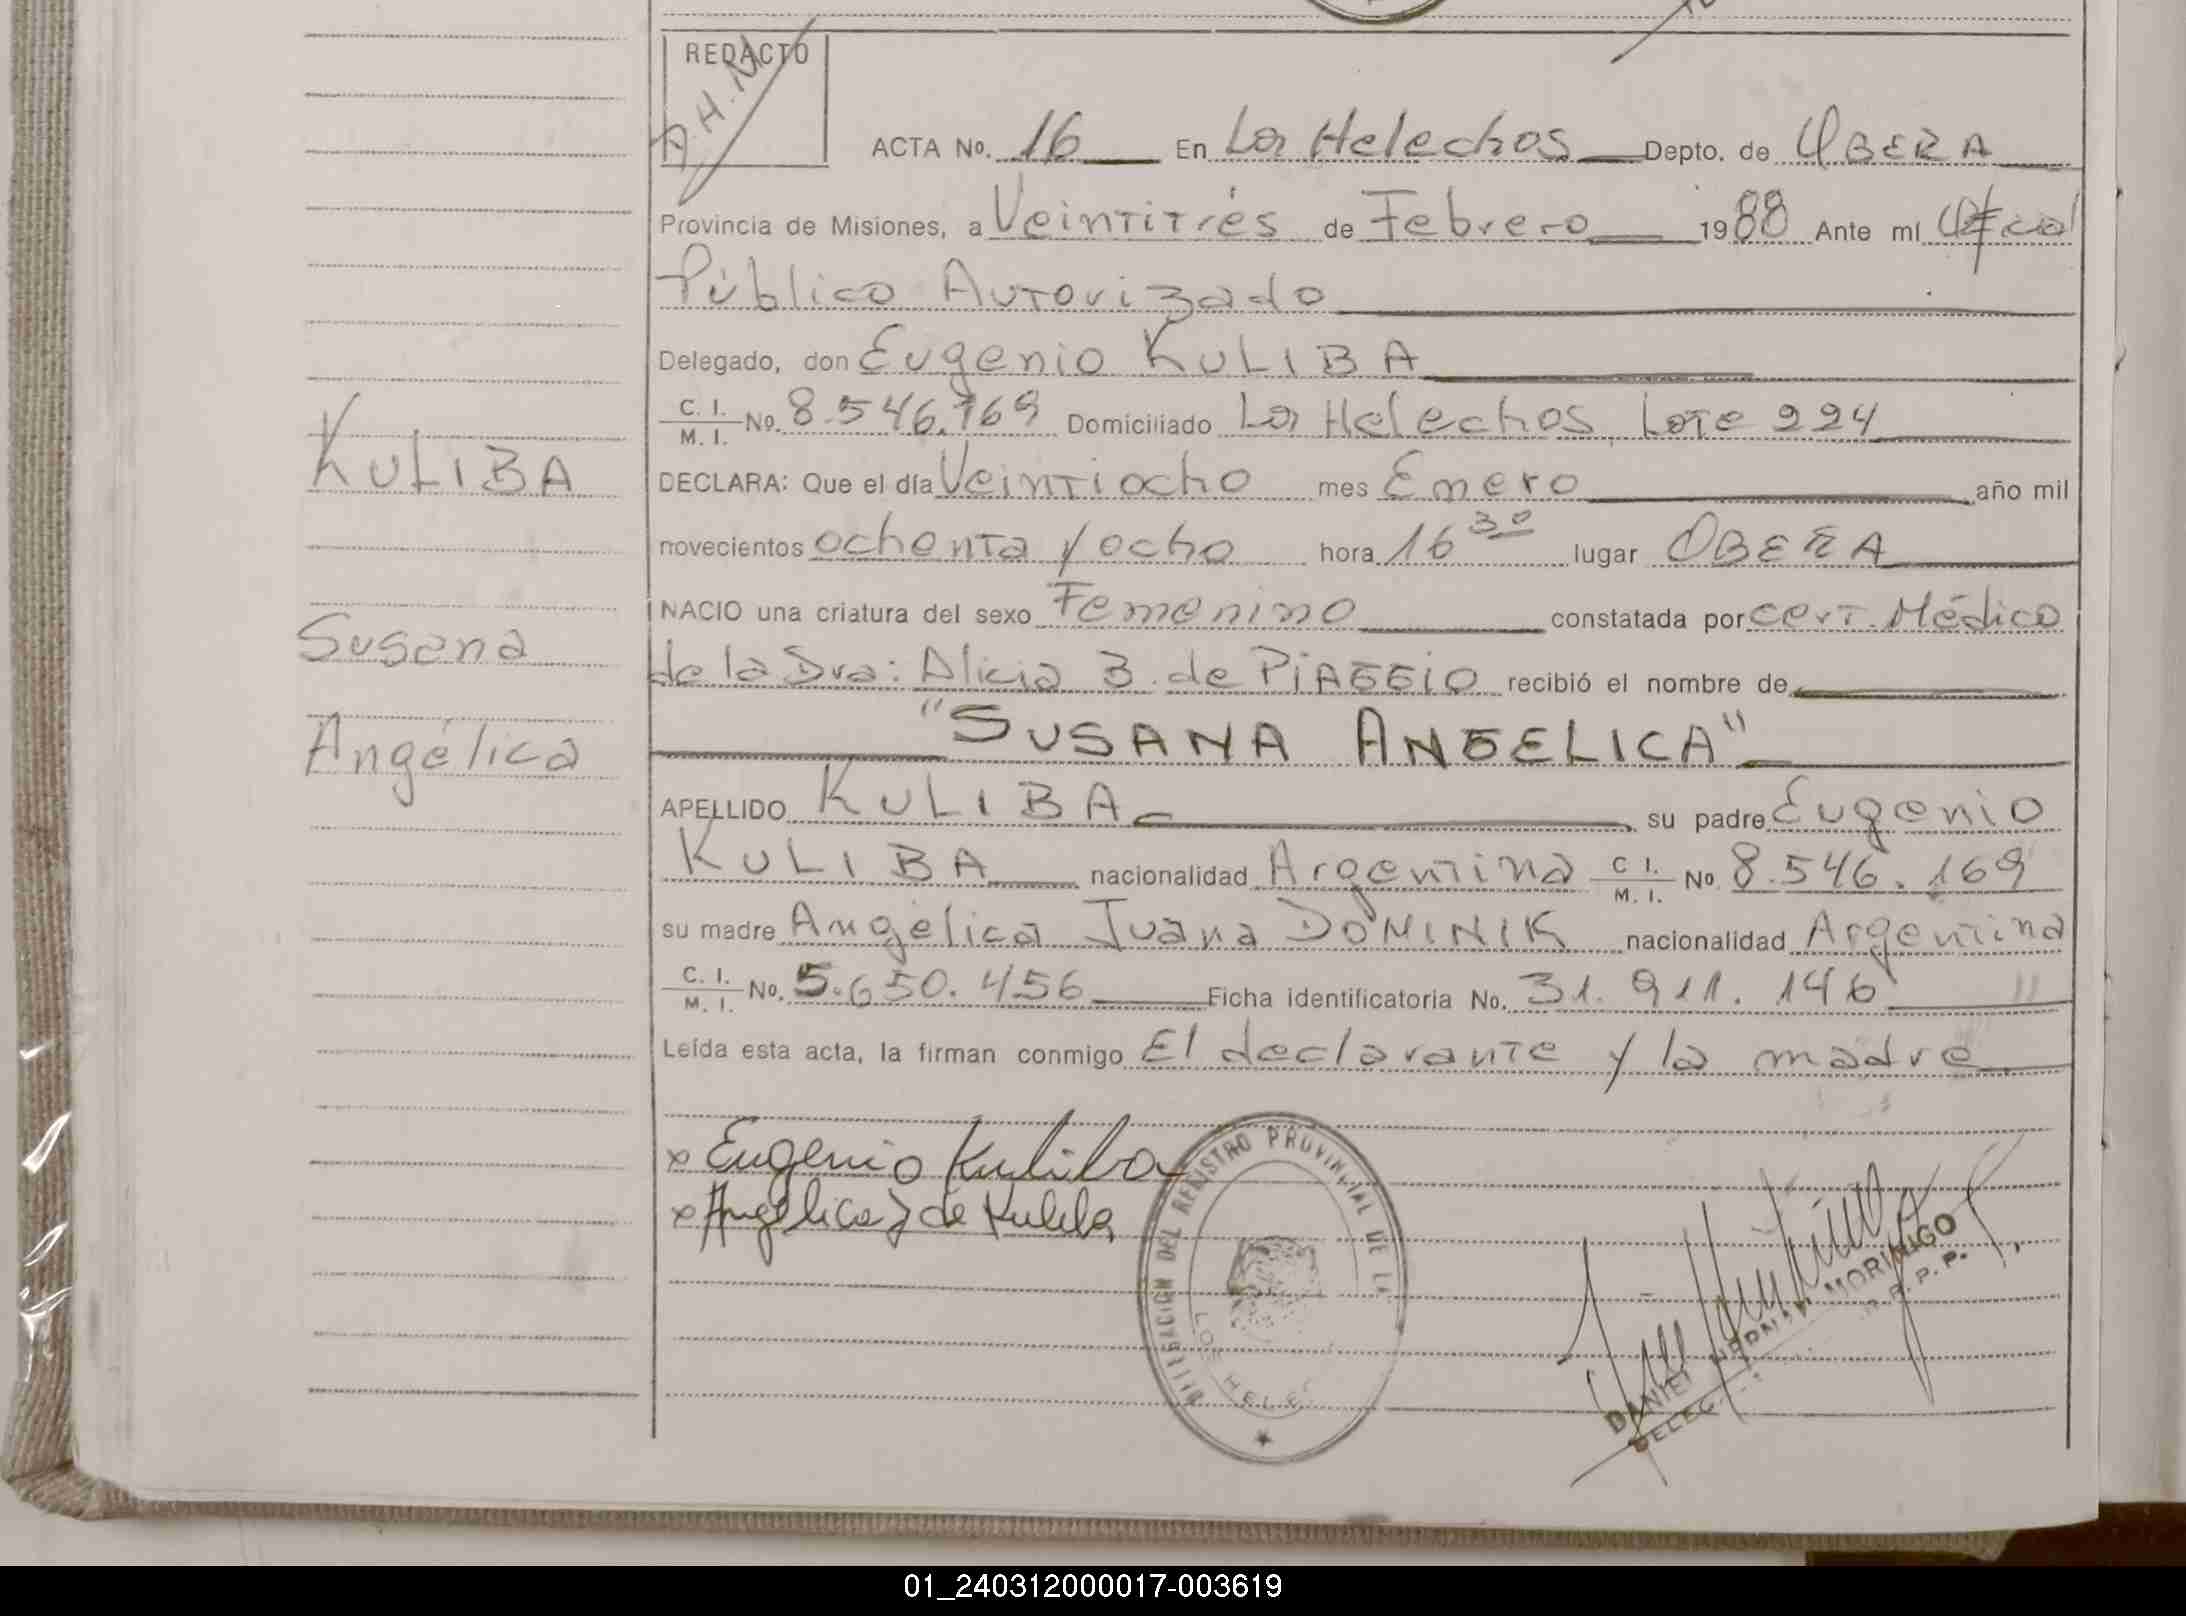 REDACTO
A.H.M
ACTA No. 16 En Los Helechos Depto. de OBERA
Provincia de Misiones, a Veintitrés de Febrero 1988 Ante mí Oficial
Público Autorizado
Delegado, don Eugenio KULIBA
C. I. / M. I. No. 8.546.169 Domiciliado Los Helechos, Lote 224
KULIBA
DECLARA: Que el día Veintiocho mes Enero año mil
novecientos ochenta y ocho hora 16 30 lugar OBERA
NACIO una criatura del sexo Femenino constatada por cert. Médico
Susana
de la Dra: Alicia B. de PIAGGIO recibió el nombre de
"SUSANA ANGELICA"
Angélica
APELLIDO KULIBA su padre Eugenio
KULIBA nacionalidad Argentina C. I. / M. I. No. 8.546.169
su madre Angélica Juana DOMINIK nacionalidad Argentina
C. I. / M. I. No. 5.650.456 Ficha identificatoria No. 31.911.146
Leída esta acta, la firman conmigo El declarante y la madre
x Eugenio Kuliba
x Angélica J de Kuliba
DELEGACION DEL REGISTRO PROVINCIAL DE LA
LOS HELEC
DANIEL HERNAN MORINIGO
DELEG
R. P. P.
01_240312000017-003619